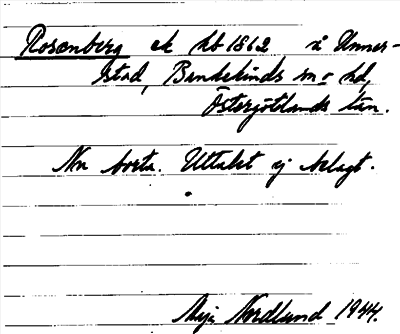 Rosenberg ek hb 1862 i Unner-
stad, Bankekinds sn o hd,
Östergötlands län.
Nu borta. Uttalet ej belagt.
Maja Nordlund 1944.